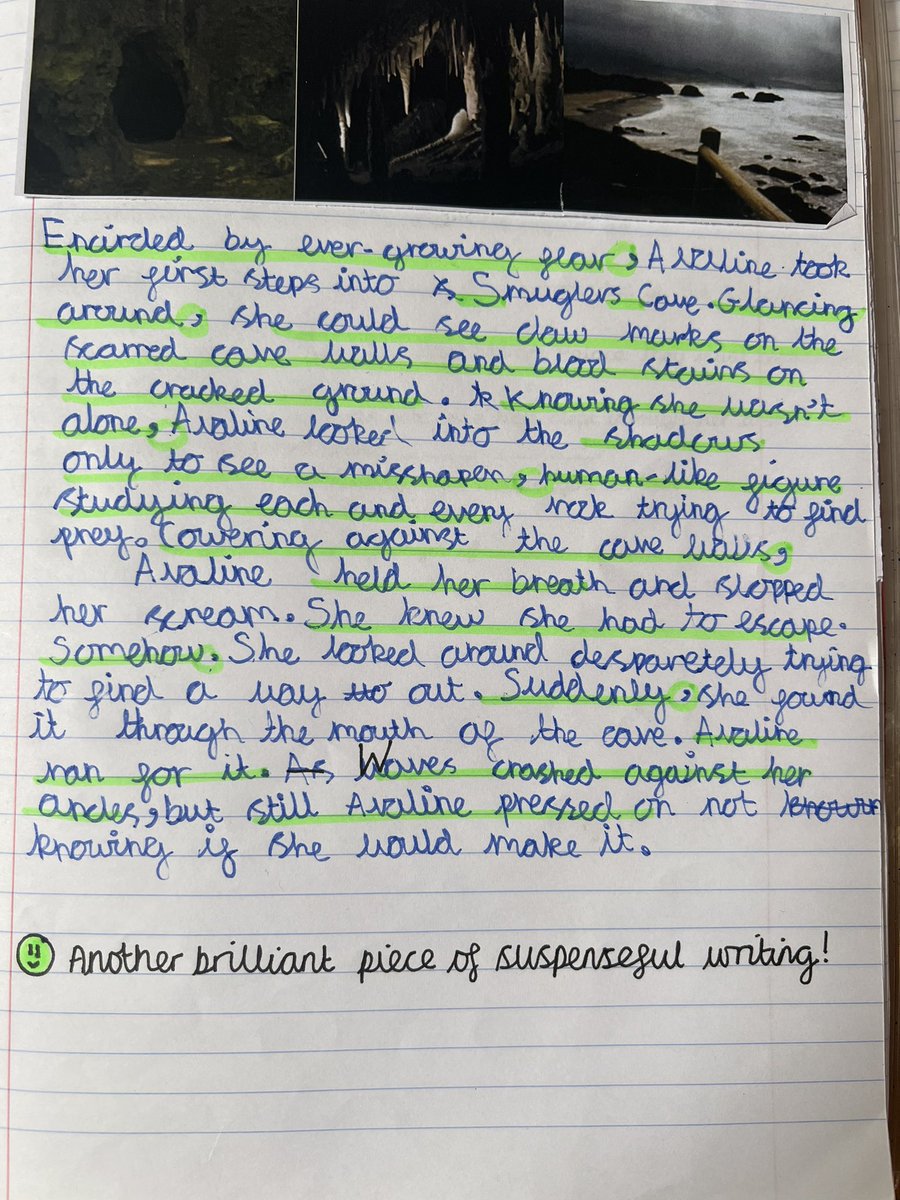 Encircled by ever-growing fear, Avaline took
her first steps into Smuglers Cove. Glancing
around, she could see claw marks on the
scarred cave walls and blood stains on
the cracked ground. Knowing she wasn't
alone, Avaline looked into the shadows
only to see a misshapen, human-like figure
studying each and every rock trying to find
prey. Cowering against the cave walls,
Avaline held her breath and stopped
her scream. She knew she had to escape.
Somehow. She looked around desparetely trying
to find a way out. Suddenly, she found
it through the mouth of the cave. Avaline
ran for it. As Waves crashed against her
ancles, but still Avaline pressed on not
knowing if she would make it.
Another brilliant piece of suspenseful writing!